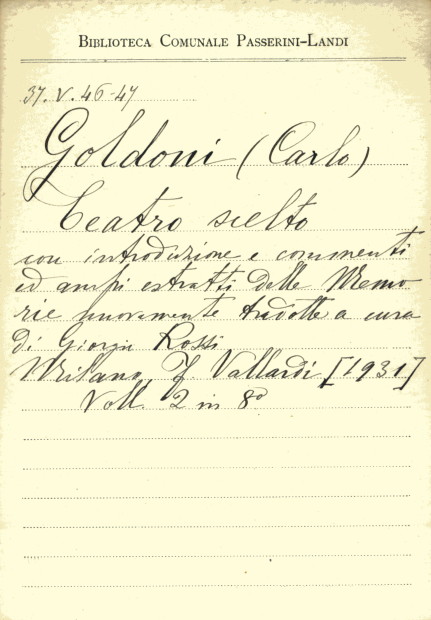 BIBLIOTECA COMUNALE PASSERINI-LANDI
37. V. 46-47
Goldoni (Carlo)
Teatro scelto
con introduzione e commenti
ed ampi estratti delle Memo
rie nuovamente tradotte a cura
di Giorgio Rossi
Milano, F. Vallardi [1931]
Voll. 2 in 8º